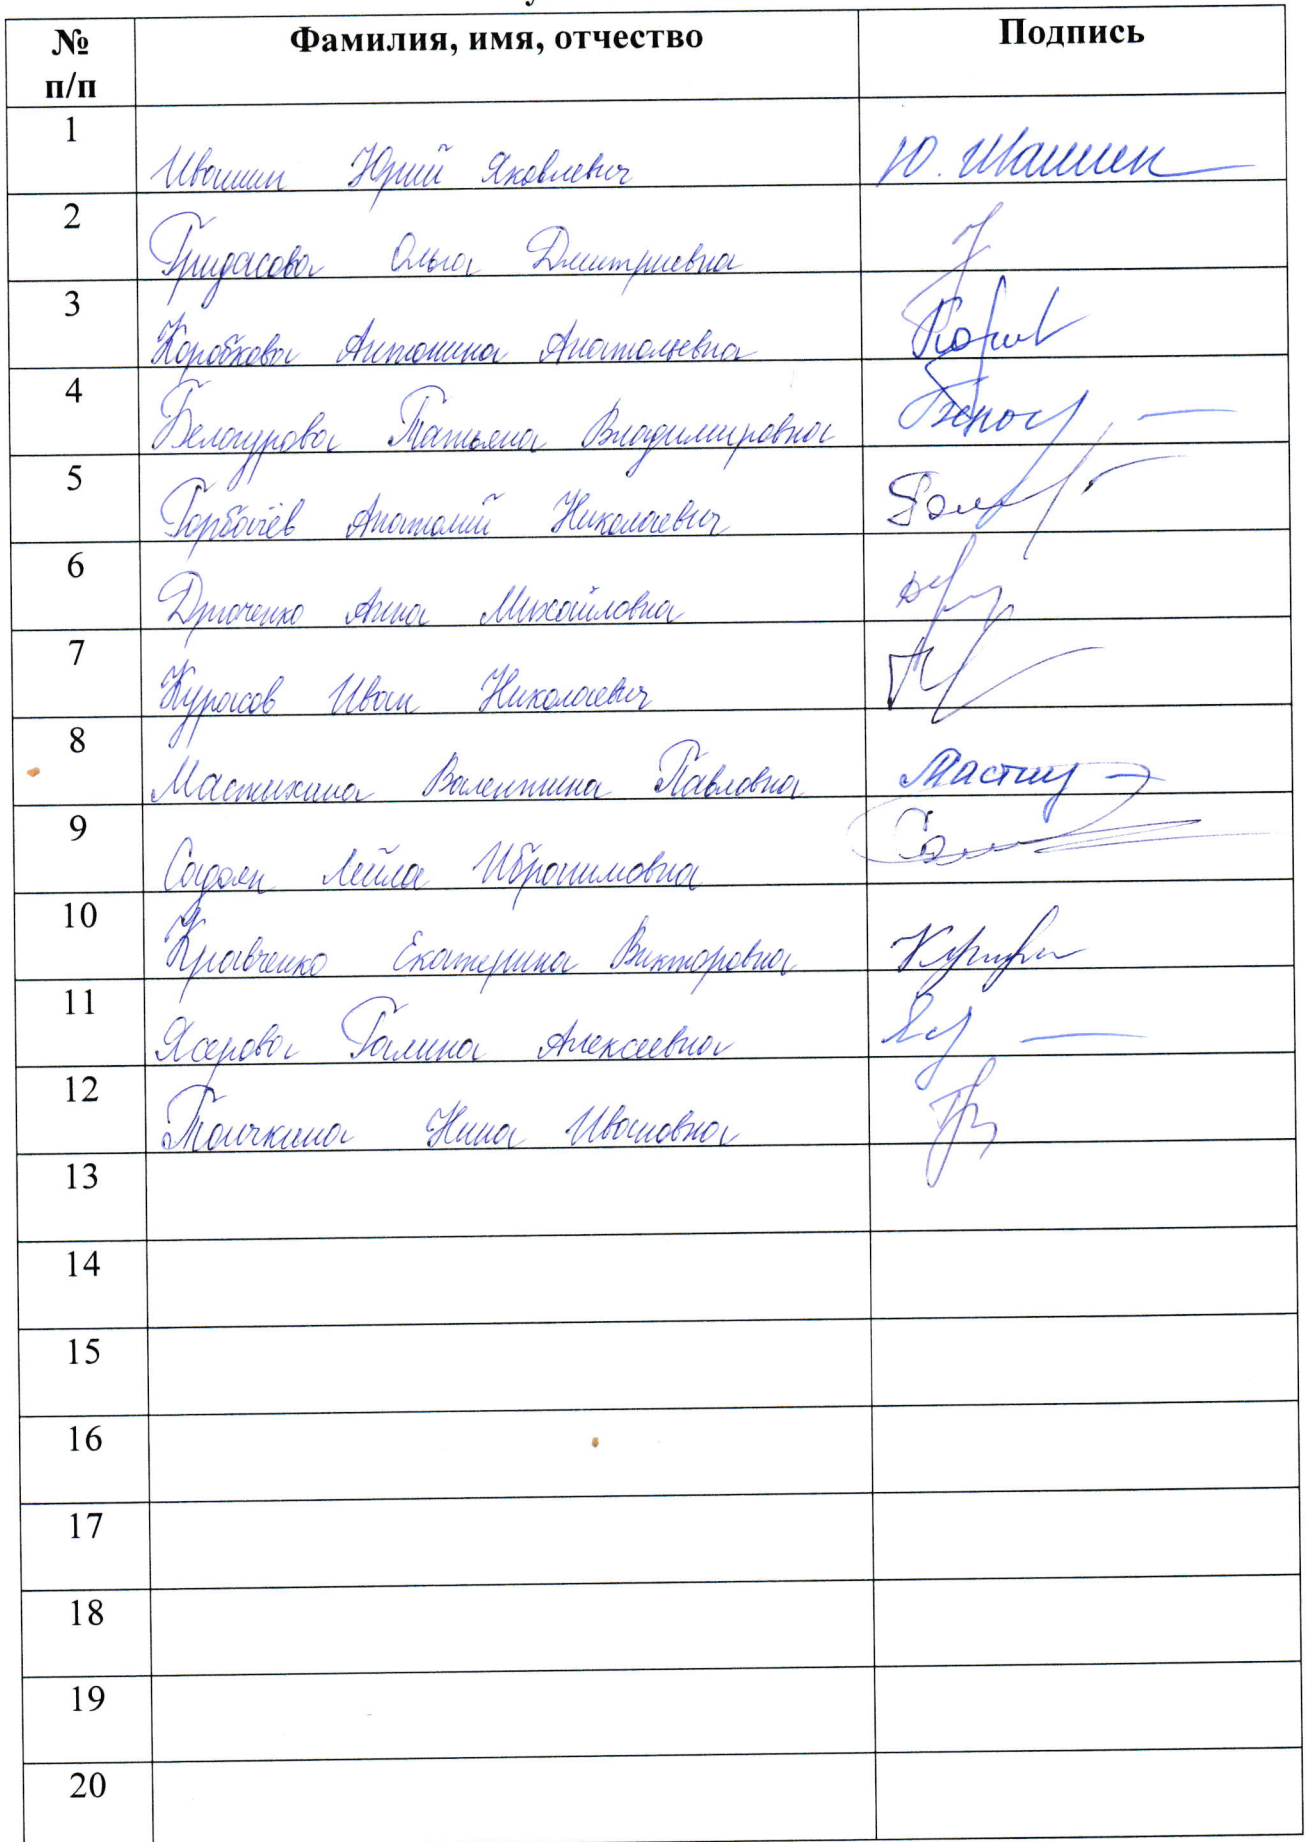 № Фамилия, имя, отчество Подпись
п/п
1
Ивашин Юрий Яковлевич Ю. Ивашин
2
Гридасова Ольга Дмитриевна
3
Коробкова Антонина Анатольевна
4
Белогурова Татьяна Владимировна
5
Горбачёв Анатолий Николаевич
6
Анна Михайловна
7
Курасов Иван Николаевич
8
Мастихина Валентина Павловна
9
Садоян Лейла Ибрагимовна
10
Кравченко Екатерина Викторовна
11
Галина Алексеевна
12
Нина Ивановна
13
14
15
16
17
18
19
20